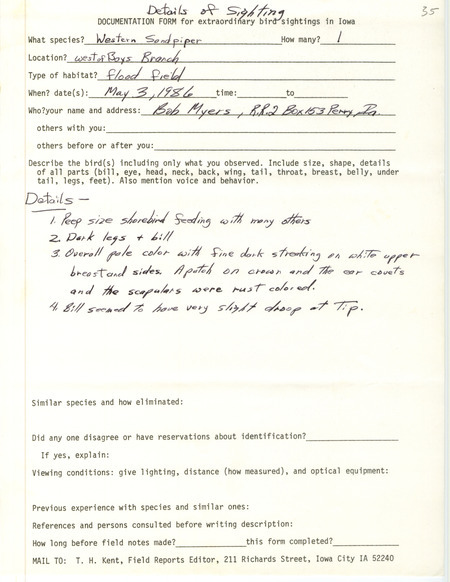 Details of Sighting
35
DOCUMENTATION FORM for extraordinary bird sightings in Iowa
What species? Western Sandpiper How many? 1
Location? west of Boys Branch
Type of habitat? flood field
When? date(s): May 3, 1986 time: to
Who? your name and address: Bob Myers, R.R.2 Box 153 Perry, Ia.
others with you:
others before or after you:
Describe the bird(s) including only what you observed. Include size, shape, details
of all parts (bill, eye, head, neck, back, wing, tail, throat, breast, belly, under
tail, legs, feet). Also mention voice and behavior.
Details -
1. Peep size shorebird feeding with many others
2. Dark legs + bill
3. Overall pale color with fine dark streaking on white upper
breast and sides. A patch on crown and the ear coverts
and the scapulars were rust colored.
4. Bill seemed to have very slight droop at tip.
Similar species and how eliminated:
Did any one disagree or have reservations about identification?
If yes, explain:
Viewing conditions: give lighting, distance (how measured), and optical equipment:
Previous experience with species and similar ones:
References and persons consulted before writing description:
How long before field notes made? this form completed?
MAIL TO: T. H. Kent, Field Reports Editor, 211 Richards Street, Iowa City IA 52240